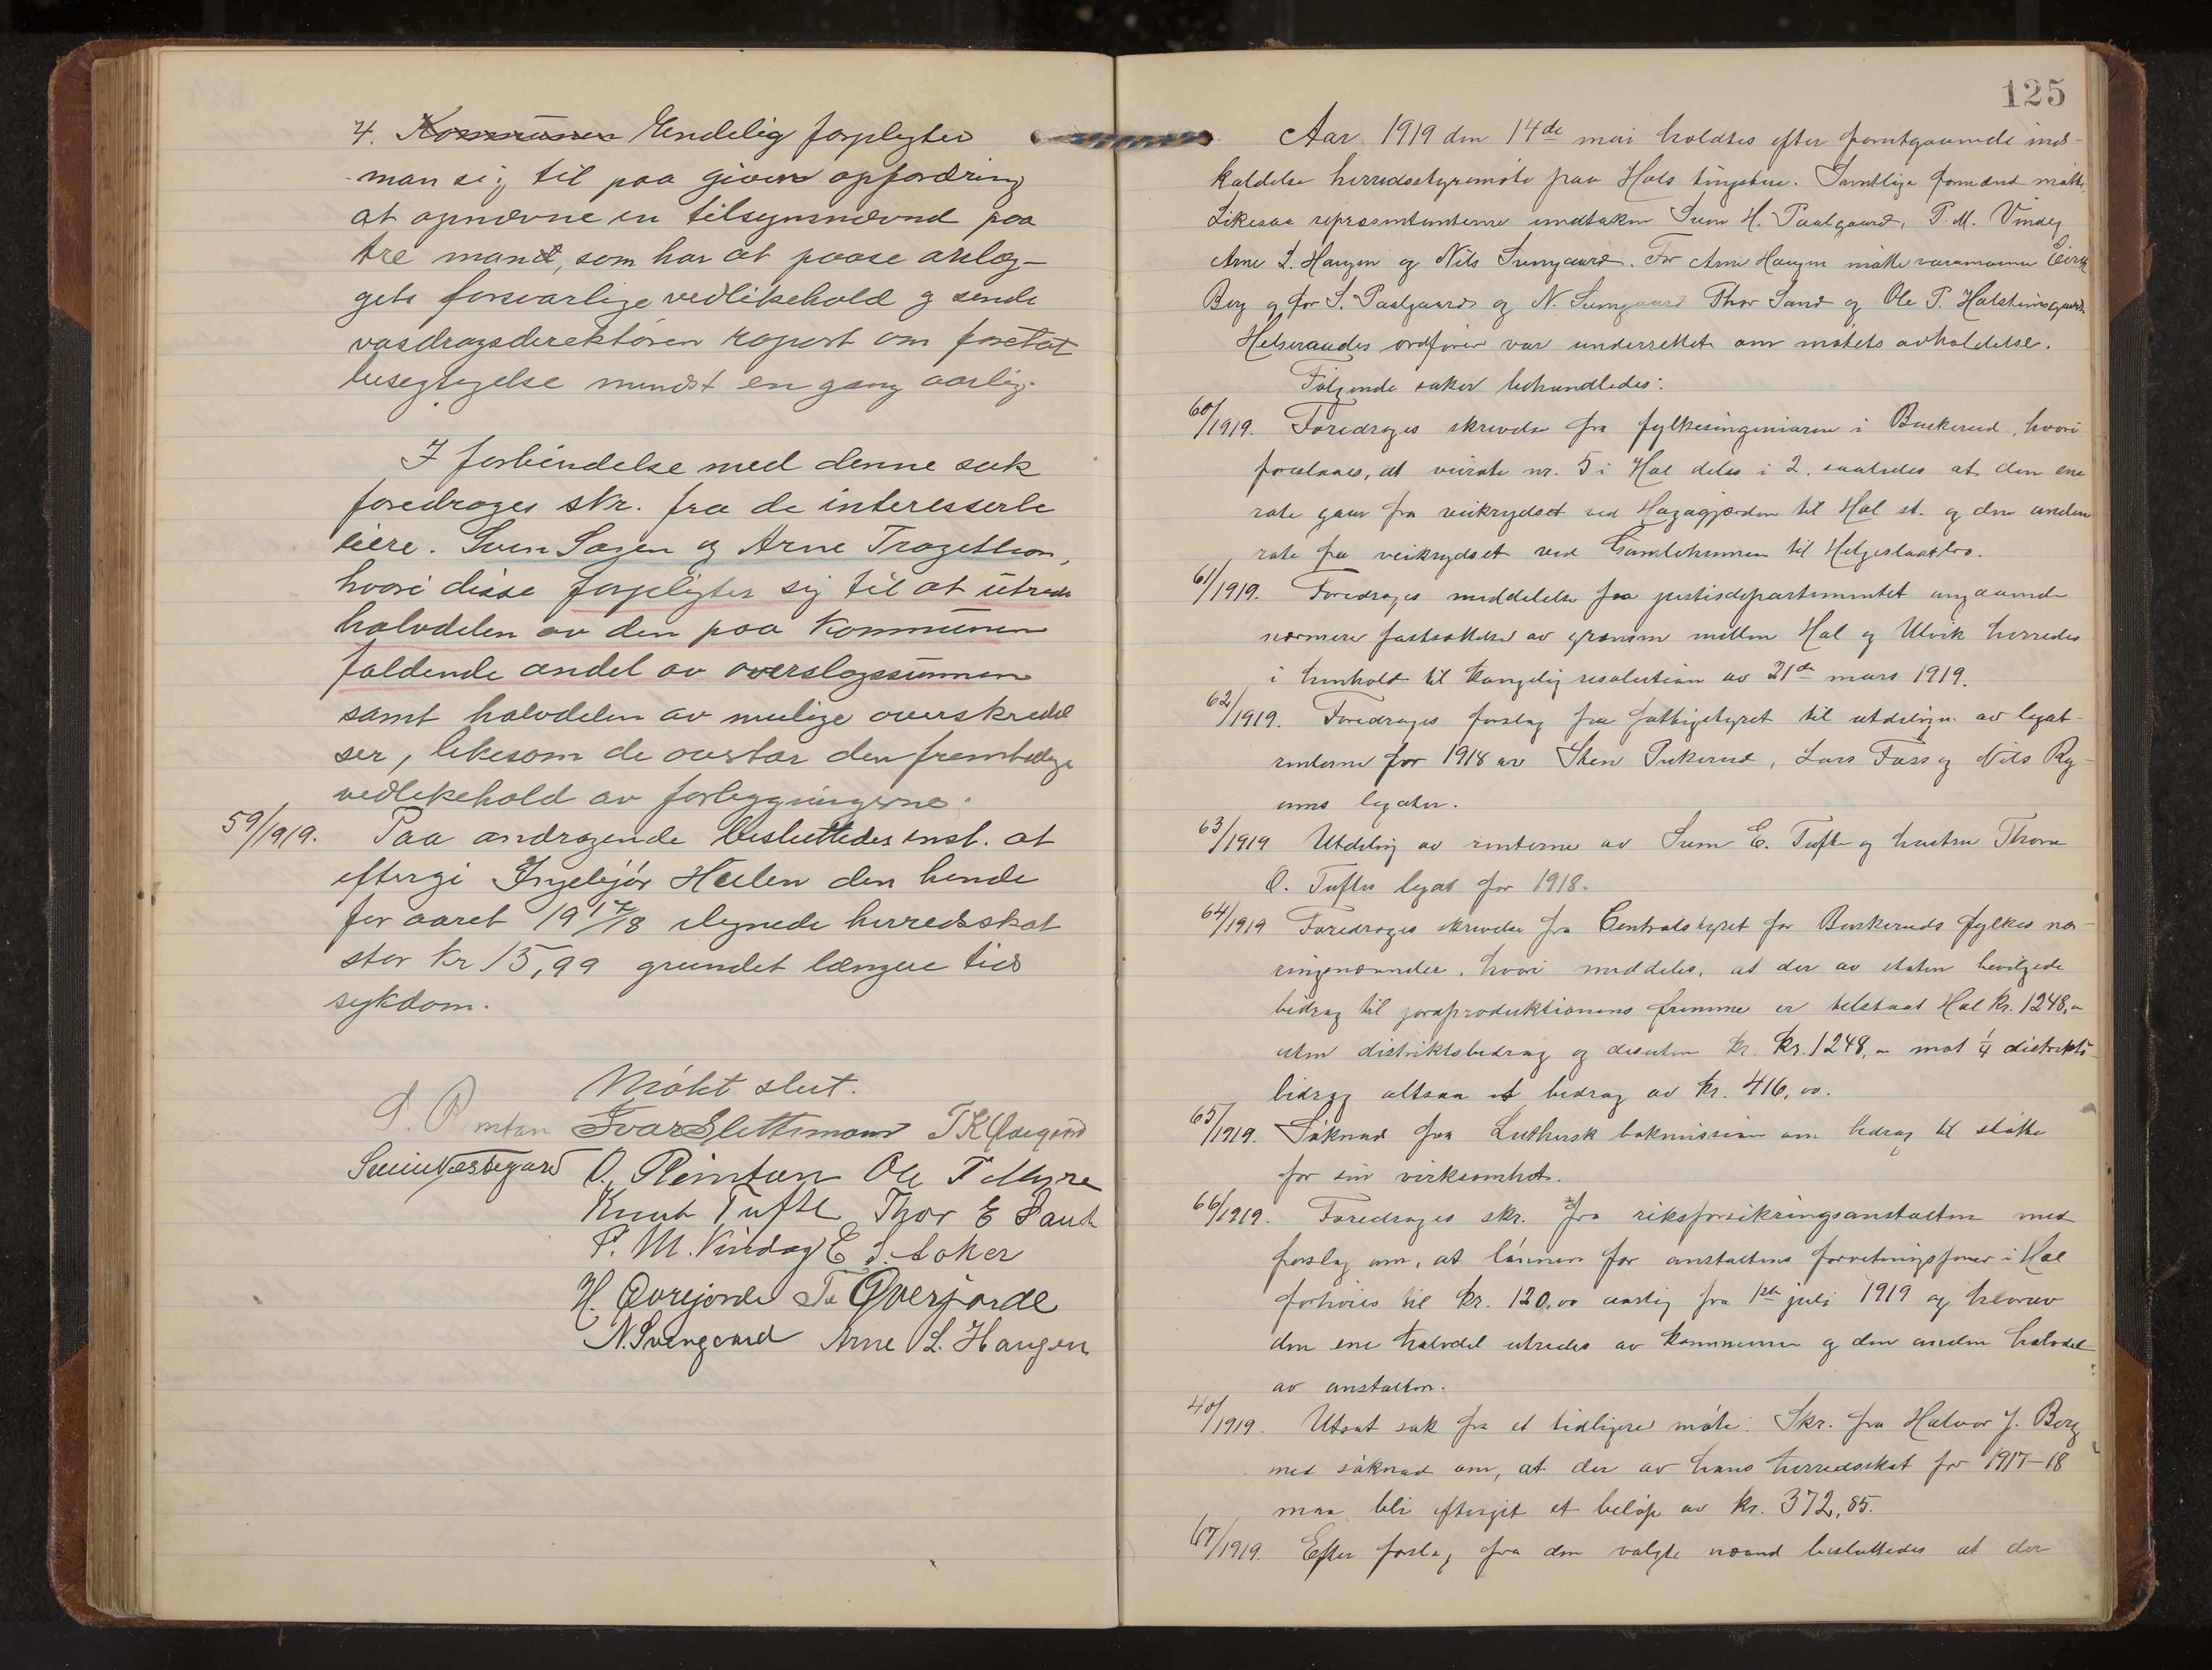 4. Kommunen Endelig forpligter
man sig til paa given opfordring
at opnævne en tilsynsnævnd paa
tre mand, som har at paase anlæg-
gets forsvarlige vedlikehold og sende
vasdragsdirektøren raport om foretat
besigtigelse mindst en gang aarlig.
I forbindelse med denne sak
foredroges skr. fra de interesserte
eiere. Sven Sagen og Arne Trogethon,
hvori disse forpligter sig til at utrede
halvdelen av den paa Kommunen
faldende andel av overslagssummen
samt halvdelen av mulige overskridel
ser, likesom de overtar den fremtidige
vedlikehold av forbygningerne.
59/1919. Paa andragende besluttedes enst. at
eftergi Ingebjør Heelen den hende
for aaret 1917/18 ilignede herredsskat
stor kr 15,99 grundet længere tids
sykdom.
Møtet slut.
Ivar Slettemoen T K Ødegård
Svein Vestegard O. Reinton Ole T Myre
Knut Tufte Thor E Sand
P. M. Vindeg E S. Loker
H. Øvrejorde Øverjorde
N. Svengaard Arne L. Haugen
125
Aar 1919 den 14de mai holdtes efter forutgaaende ind-
kaldelse herredsstyremøte paa Hols tingstue. Samtlige formænd møtte.
Likesaa repræsentanterne undtaken Sven H. Paalgaard, P. M. Vindeg
Arne L. Haugen og Nils Svengaard. For Arne Haugen møtte varamann Eirik
Berg og for S. Paalgaard og N. Svengaard Thor Sand og Ole P. Holsteinsgaard.
Helseraadets ordfører var underrettet om møtets avholdelse.
Følgende saker behandledes:
60/1919. Foredroges skrivelse fra fylkesingeniøren i Buskerud, hvori
foreslaaes, at veirote nr. 5 i Hol deles i 2. saaledes at den ene
rote gaar fra veikrydset ved Hagagjerden til Hol st. og den anden
rote fra veikrydset ved Gamlehumen til Helgeslaattbro.
61/1919. Foredroges meddelelse fra justisdepartementet angaaende
nærmere fastsættelse av grænsen mellem Hol og Ulvik herreder
i henhold til kongelig resolution av 21de mars 1919.
62/1919. Foredroges forslag fra fattigstyret til utdeling av legat-
renterne for 1918 av Sten Pukerud, Lars Foss og Nils Ry-
ens legater.
63/1919 Utdeling av renterne av Svein E. Tufte og hustru Throne
O. Tuftes legat for 1918.
64/1919 Foredroges skrivelse fra Centralstyret for Buskeruds fylkes næ-
ringsnævnder, hvori meddeles, at der av staten bevilgede
bidrag til jordproduktionens fremme er tilstaat Hol kr. 1248,-
uten distriktsbidrag og desuten kr. kr. 1248,- mot 1/4 distrikts-
bidrag altsaa et bidrag av kr. 416,00.
65/1919. Søknad fra Luthersk bokmission om bidrag til støtte
for sin virksomhet.
66/1919. Foredroges skr. fra riksforsikringsanstalten med
forslag om, at lønnen for anstaltens forretningsfører i Hol
forhøies til kr. 120,00 aarlig fra 1ste juli 1919 og hvorav
den ene halvdel utredes av kommunen og den anden halvdel
av anstalten.
40/1919. Utsat sak fra et tidligere møte: Skr. fra Halvor J. Berg
med søknad om, at der av hans herredsskat for 1917-18
maa bli eftergit et beløp av kr. 372,85.
67/1919. Efter forslag fra den valgte nævnd besluttedes at der